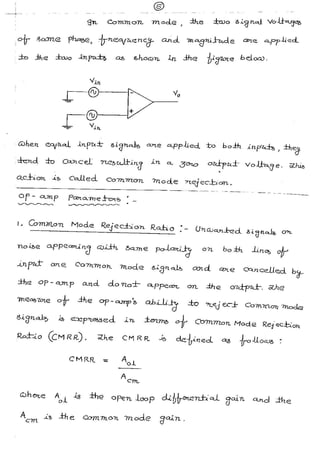 5
In common mode, the two signal voltages
of same phase, frequency and magnitude are applied
to the two inputs as shown in the figure below.
Vin
Vo
-
+
Vin
When equal input signals are applied to both inputs, they
tend to cancel resulting in a zero output voltage. This
action is called common mode rejection.
OP-amp Parameters :-
1. Common Mode Rejection Ratio :- Unwanted signals or
noise appearing with same polarity on both lines of
input are common mode signals and are cancelled by
the op-amp and donot appear on the output. The
measure of the op-amp's ability to reject common mode
signals is expressed in terms of Common Mode Rejection
Ratio (CMRR). The CMRR is defined as follows :
CMRR = AoL
Acm
Where AoL is the open loop differential gain and the
Acm is the common mode gain.